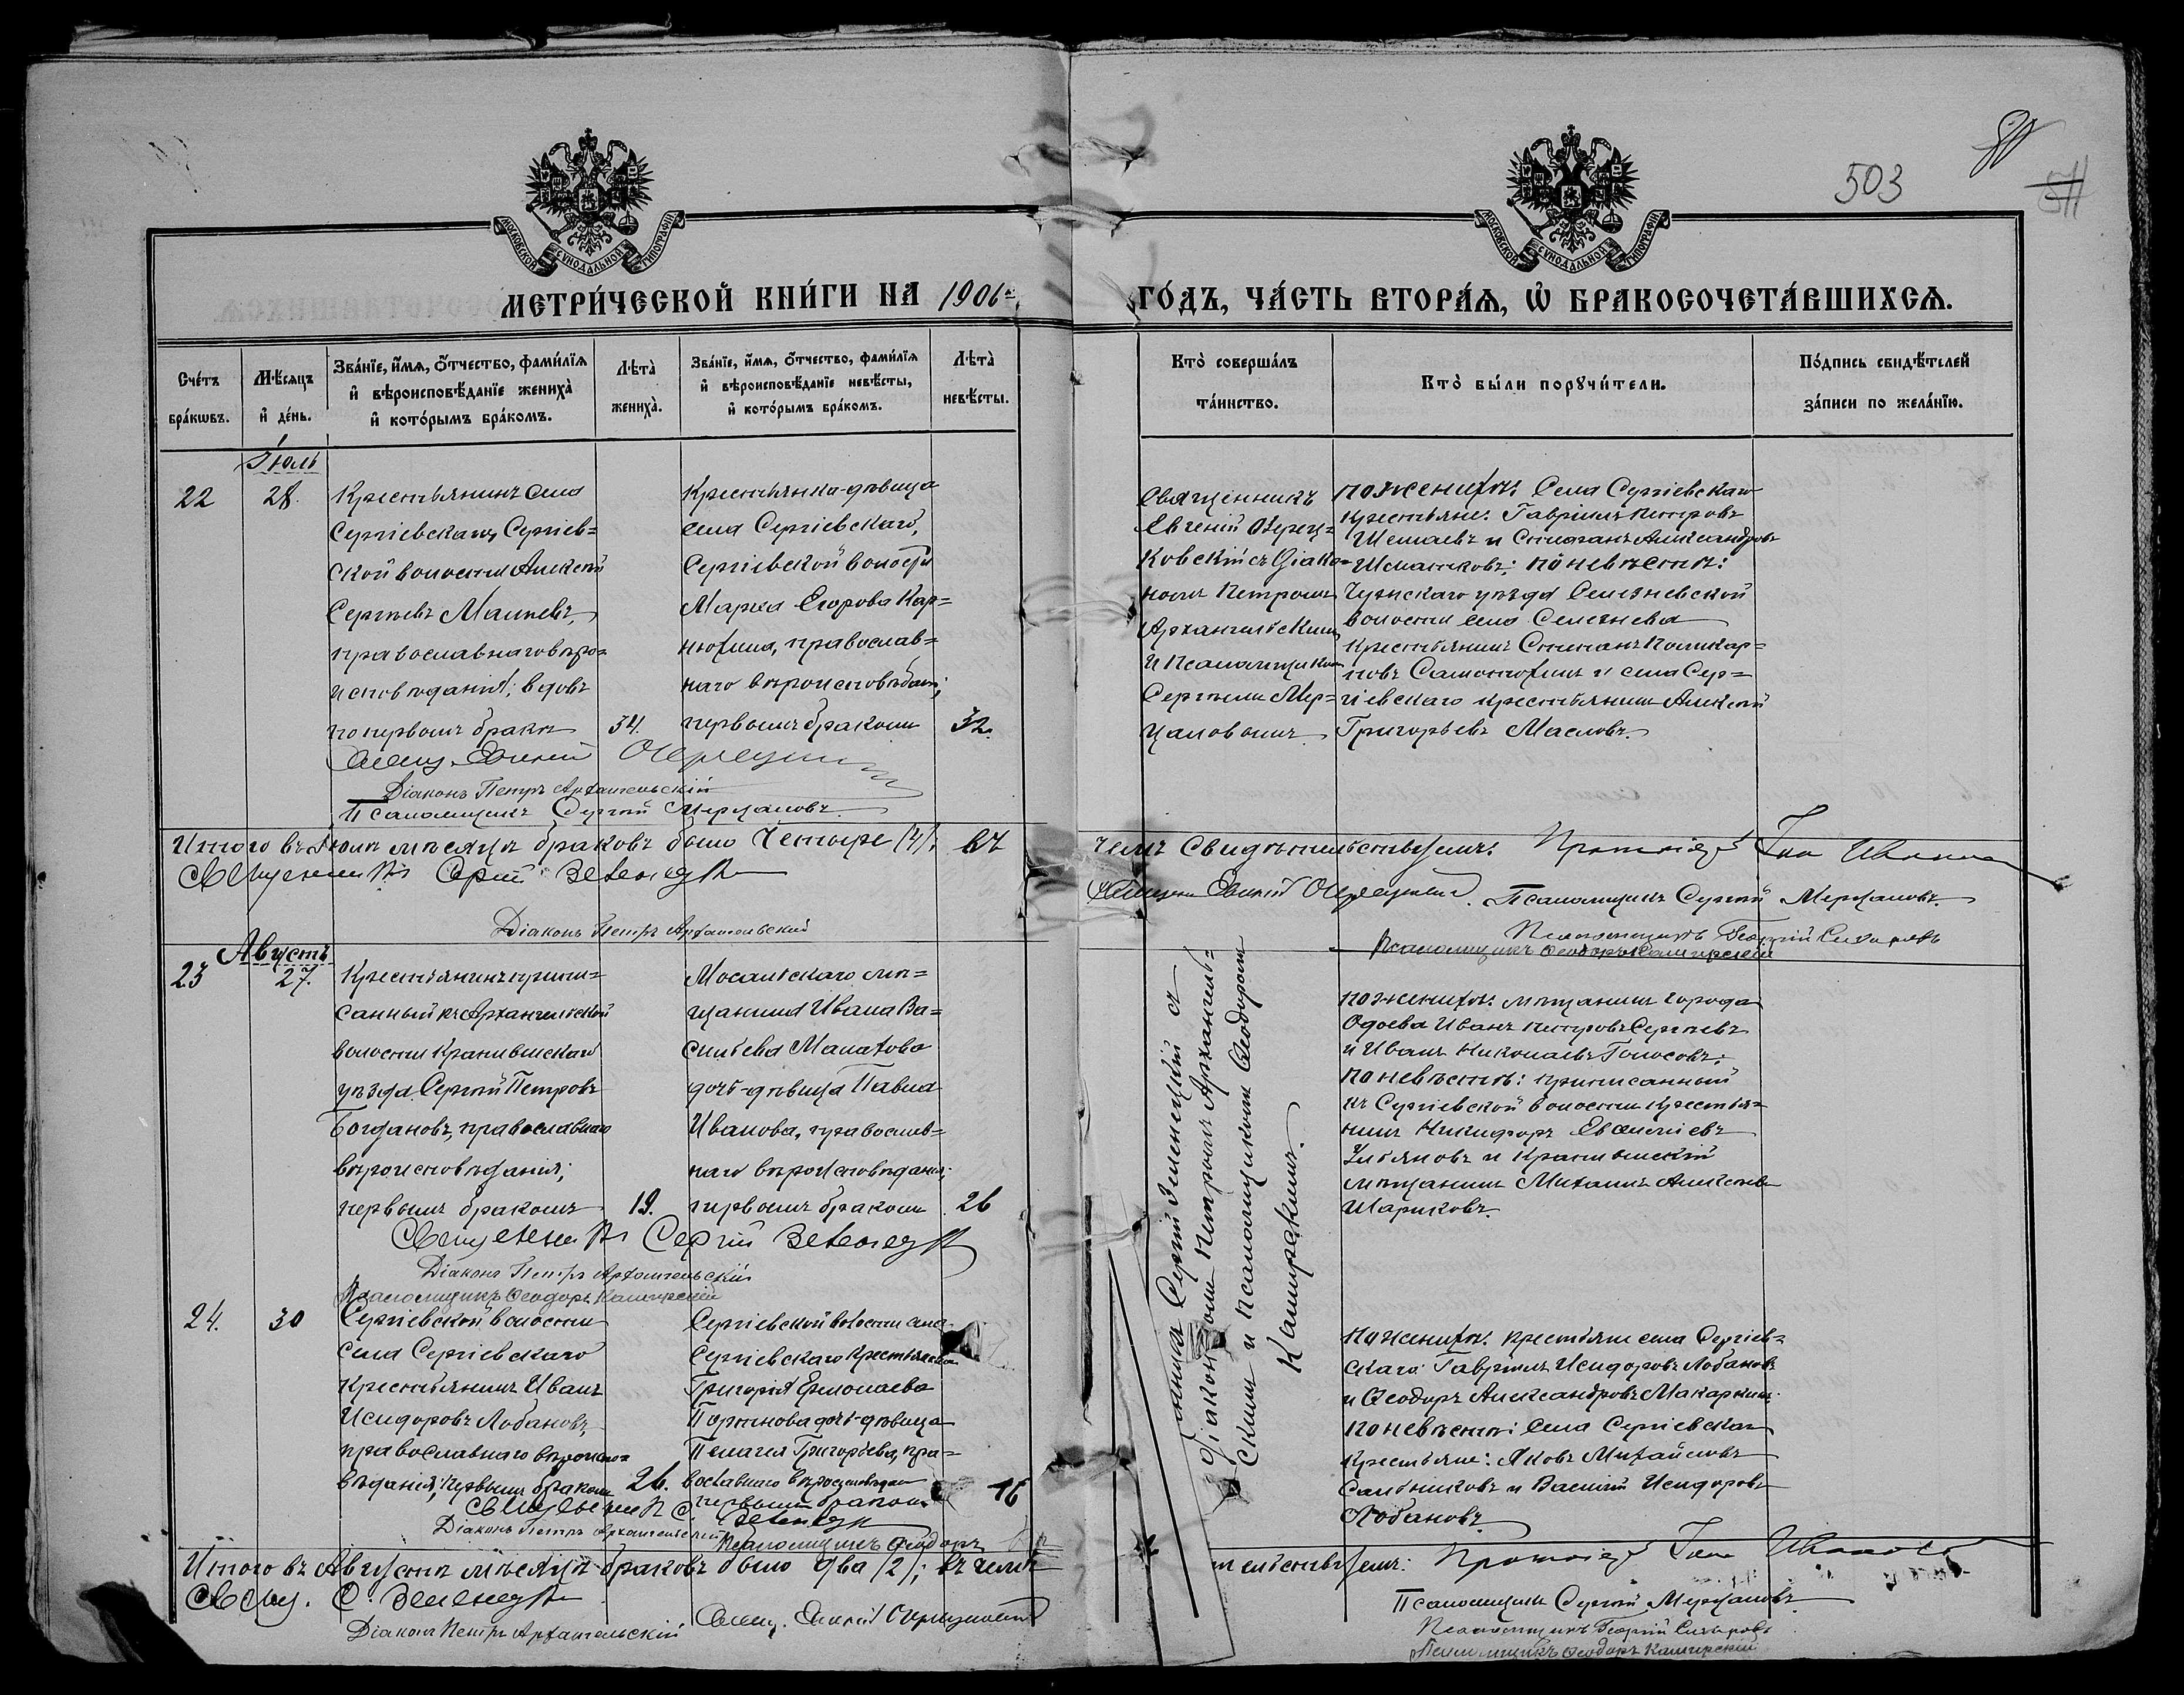 503
МОСКОВСКОЙ СѴНОДАЛЬНОЙ ТИПОГРАФІИ
МОСКОВСКОЙ СѴНОДАЛЬНОЙ ТИПОГРАФІИ
МЕТРИ́ЧЕСКОЙ КНИ́ГИ НА 1906 г.
ГО́ДЪ, ЧА́СТЬ ВТОРА́Ѧ, Ѡ҆ БРАКОСОЧЕТА́ВШИХСѦ.
Сче́тъ бра́кѡвъ.
Мѣ́сяцъ и҆ де́нь.
Зва́нїе, и҆́мѧ, ѻ҆́тчество, фами́лїѧ
и҆ вѣроисповѣ́данїе жениха̀
и҆ кото́рымъ бра́комъ.
Лѣ́та̀ жениха̀.
Зва́нїе, и҆́мѧ, ѻ҆́тчество, фами́лїѧ
и҆ вѣроисповѣ́данїе невѣ́сты,
и҆ кото́рымъ бра́комъ.
Лѣ́та̀ невѣ́сты.
Кто̀ соверша́лъ та́инство.
Кто̀ бы́ли порꙋчи́тели.
По́дпись свидѣ́телей за́писи по жела́нїю.
Іюль
22
28.
Крестьянинъ села
Сергіевскаго, Сергіев=
ской волости Алексѣй
Сергѣевъ
православнаго вѣро=
исповѣданія; вдовъ
по первомъ бракѣ
34.
Крестьянка-дѣвица
села Сергіевскаго,
Сергіевской волости
Марѳа Егорова Кар=
нюхина, православ=
наго вѣроисповѣданія;
первымъ бракомъ
32.
Священникъ
Евгеній Озерец=
ковскій съ Діако=
номъ Петромъ
Архангельскимъ
и Псаломщикомъ
Сергѣемъ Мер=
цаловымъ.
По женихѣ: Села Сергіевскаго
крестьяне: Гавріилъ Петровъ
и Стефанъ Александровъ
по невѣстѣ:
уѣзда Селезневской
волости села Селезнева
крестьянинъ Степанъ Поликар=
повъ Самохинъ и села Сер=
гіевскаго крестьянинъ Алексѣй
Григорьевъ Масловъ.
Свящ. Евгеній
Діаконъ Петръ Архангельскій
Псаломщикъ Сергѣй Мерцаловъ
Итого въ Іюлѣ мѣсяцѣ браковъ было Четыре (4); въ
чемъ свидѣтельствуемъ: Протоіерей
Священникъ Сергій Зеленецкій
Свящ. Евгеній Псаломщикъ Сергѣй Мерцаловъ
Діаконъ Петръ Архангельскій
Псаломщикъ Георгій
Псаломщикъ Ѳеодоръ Каширскій
Августъ
23
27.
Крестьянинъ припи=
санный къ Архангельской
волости Крапивенскаго
уѣзда Сергѣй Петровъ
Богдановъ, православнаго
вѣроисповѣданія;
первымъ бракомъ
19.
Мосальскаго мѣ=
щанина Ивана Ва=
сильева Малахова
дочь-дѣвица Павла
Иванова, православ=
наго вѣроисповѣданія;
первымъ бракомъ
26
Священникъ Сергій Зеленецкій съ
Діакономъ Петромъ Архангель=
скимъ и Псаломщикомъ Ѳеодоромъ
Каширскимъ.
По женихѣ: мѣщанинъ города
Одоева Иванъ Петровъ Сергѣевъ
и Иванъ Николаевъ Голосовъ;
по невѣстѣ: приписанный
къ Сергіевской волости крестья=
нинъ Никифоръ
Ульяновъ и Крапивенскій
мѣщанинъ Михаилъ Алексѣевъ
Шариковъ.
Священникъ Сергій Зеленецкій
Діаконъ Петръ Архангельскій
Псаломщикъ Ѳеодоръ Каширскій
24.
30
Сергіевской волости
села Сергіевскаго
крестьянинъ Иванъ
Исидоровъ Лобановъ,
православнаго вѣроиспо=
вѣданія; первымъ бракомъ
26.
Сергіевской волости села
Сергіевскаго крестьянина
Григорія Ермолаева
дочь-дѣвица
Пелагея Григорьева, пра=
вославнаго вѣроисповѣданія
первымъ бракомъ
16
По женихѣ: крестьяне села Сергіев=
скаго: Гавріилъ Исидоровъ Лобановъ
и Ѳеодоръ Александровъ Макаркинъ;
по невѣстѣ: Села Сергіевскаго
крестьяне: Яковъ Михайловъ
Сальниковъ и Василій Исидоровъ
Лобановъ.
Священникъ С. Зеленецкій
Діаконъ Петръ Архангельскій
Псаломщикъ Ѳеодоръ
Итого въ Августѣ мѣсяцѣ браковъ было два (2); въ чемъ
тельствуемъ: Протоіерей
Свящ. С. Зеленецкій
Свящ. Евгеній
Псаломщикъ Сергѣй Мерцаловъ
Діаконъ Петръ Архангельскій
Псаломщикъ Георгій
Псаломщикъ Ѳеодоръ Каширскій